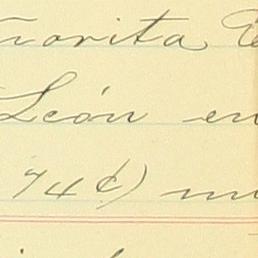 ñorita
León en
74¢) m